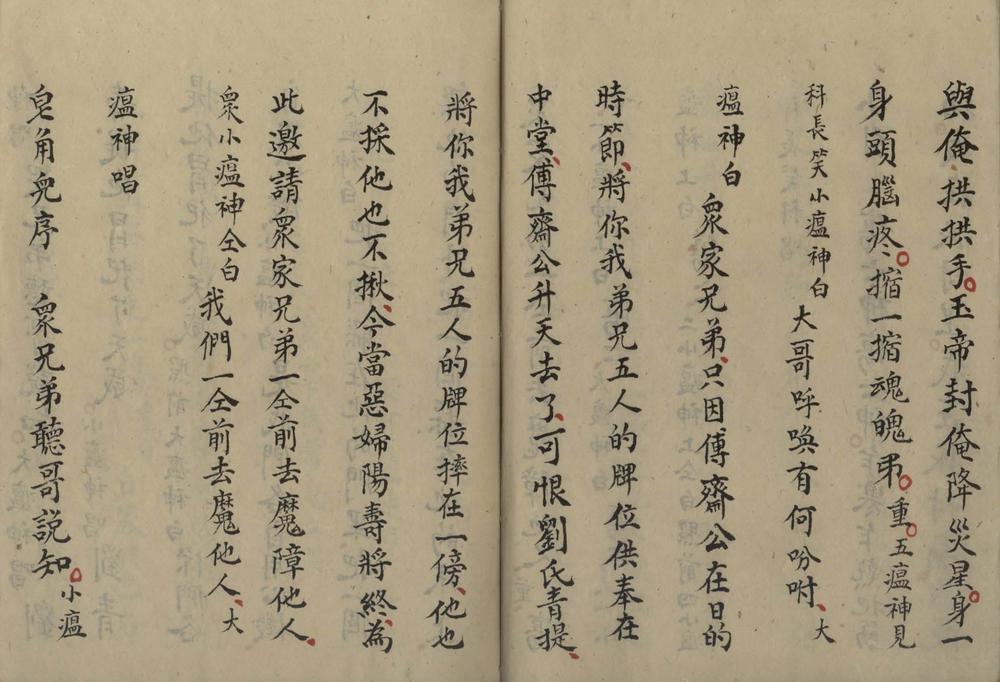 與俺拱拱手玉帝封俺降災星身一
身頭腦疼搐一搐魂魄弔重五瘟神見
科長笑小瘟神白大哥呼喚有何吩咐大
瘟神白眾家兄弟只因傅齋公在日的
時節將你我弟兄五人的牌位供奉在
中堂傅齋公升天去了可恨劉氏青提
將你我弟兄五人的牌位摔在一傍他也
不採他也不揪今當惡婦陽壽將終為
此邀請眾家兄弟一仝前去魔障他人
眾小瘟神仝白我們一仝前去魔他人大
瘟神唱
皂角兒序 眾兄弟聽哥説知小瘟